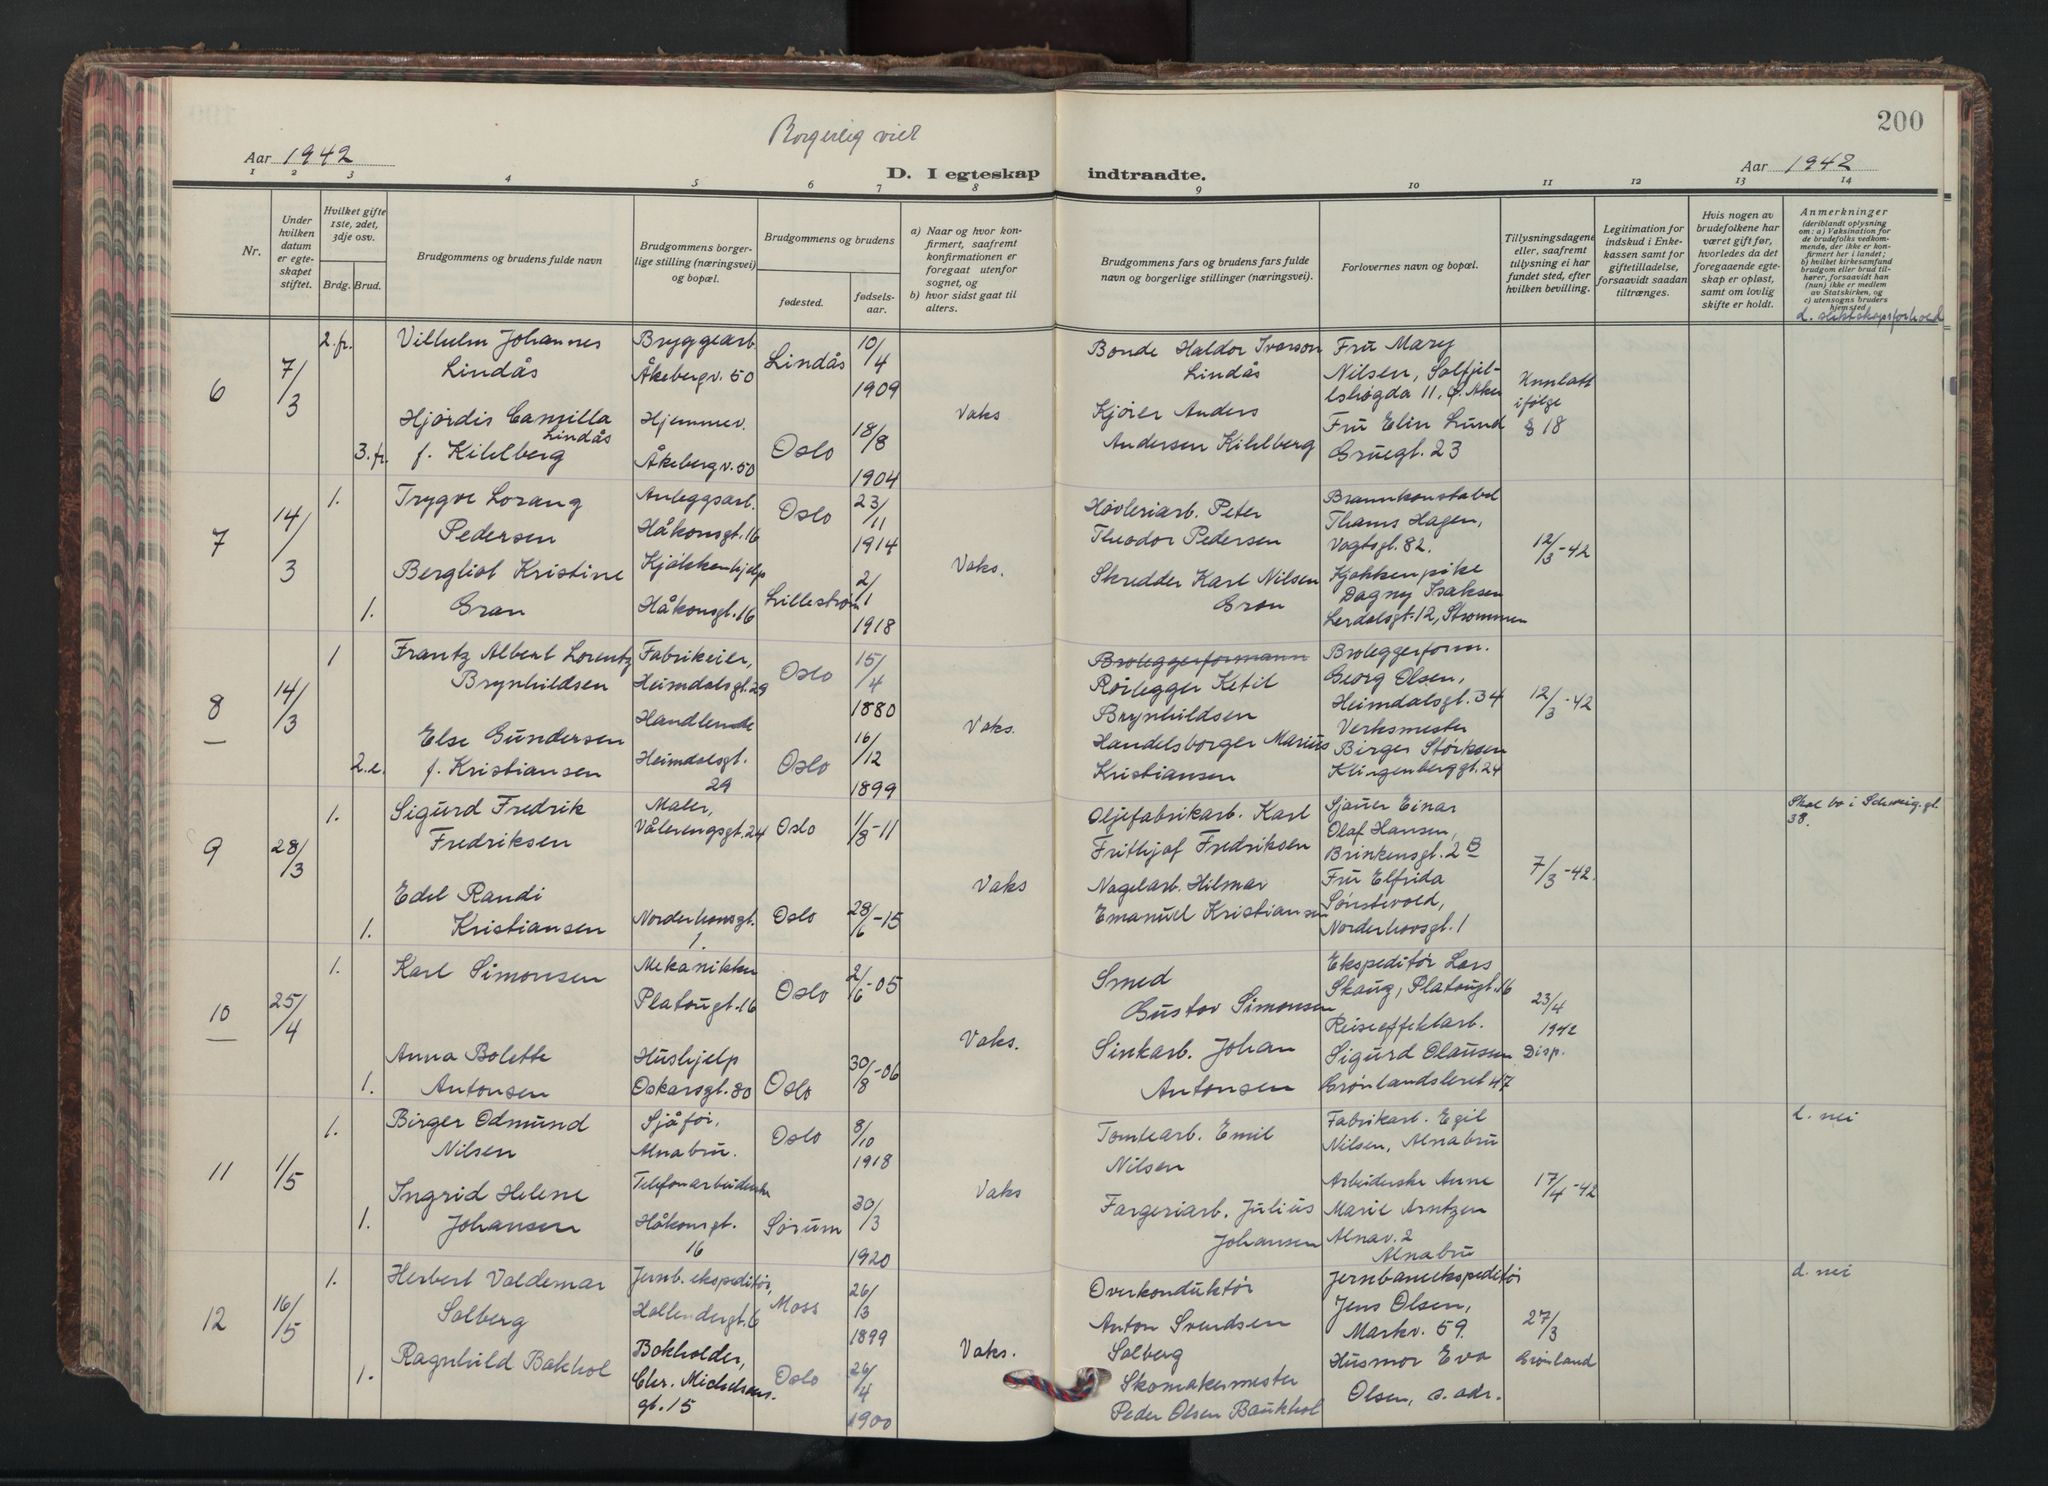 200
Borgerlig viet
Aar 1942
D. I egteskap indtraadte.
Aar 1942
1 2 3 4 5 6 7 8 9 10 11 12 13 14
Nr.
Under hvilken datum er egteskapet stiftet.
Hvilket gifte 1ste, 2det, 3dje osv.
Brdg. Brud.
Brudgommens og brudens fulde navn
Brudgommens borgerlige stilling (næringsvei) og bopæl.
Brudgommens og brudens
fødested.
fødselsaar.
a) Naar og hvor konfirmert, saafremt konfirmationen er foregaat utenfor sognet, og
b) hvor sidst gaat til alters.
Brudgommens fars og brudens fars fulde navn og borgerlige stillinger (næringsvei).
Forlovernes navn og bopæl.
Tillysningsdagene eller, saafremt tillysning ei har fundet sted, efter hvilken bevilling.
Legitimation for indskud i Enkekassen samt for giftetilladelse, forsaavidt saadan tiltrænges.
Hvis nogen av brudefolkene har været gift før, hvorledes da det foregaaende egteskap er opløst, samt om lovlig skifte er holdt.
Anmerkninger
(deriblandt oplysning om: a) Vaksination for de brudefolks vedkommende, der ikke er konfirmert her i landet;
b) hvilket kirkesamfund brudgom eller brud tilhører, forsaavidt han (hun) ikke er medlem av Statskirken, og
c) utensogns bruders hjemsted
d. slektskapsforhold
6
7/3
2. fr.
Vilhelm Johannes
Lindås
Bryggearb.
Åkebergv. 50
Lindås
10/4
1909
Vaks
Bonde Haldor Ivarson
Lindås
Fru Mary
Nilsen, Solfjel-
lshøgda 11, Ø. Aker
Unnlatt
ifølge
§ 18
3. fr.
Hjørdis Camilla
Lindås
f. Kihlberg
Hjemmev.
Åkebergv. 50
Oslo
18/8
1904
Kjører Anders
Andersen Kihlberg
Fru Elin Lund
Gruegt. 23
7
14/3
1.
Trygve Lorang
Pedersen
Anleggsarb.
Håkonsgt. 16
Oslo
23/11
1914
Vaks.
Høvleriarb. Peter
Theodor Pedersen
Brannkonstabel
Thams Hagen,
Vogtsgt. 82.
12/3-42
1.
Bergliot Kristine
Gran
Kjøkkenhjelp
Håkonsgt. 16
Lillestrøm
2/1
1918
Skredder Karl Nilsen
Gran
Kjøkkenpike
Dagny Isaksen
Lerdalsgt. 12, Strømmen
8
14/3
1
Frantz Albert Lorentz
Brynhildsen
Fabrikeier,
Heimdalsgt. 29
Oslo
15/4
1880
Vaks.
Broleggerformann
Rørlegger Ketil
Brynhildsen
Broleggerform.
Georg Olsen,
Heimdalsgt. 34
12/3-42
2. e.
Else Gundersen
f. Kristiansen
Handlende
Heimdalsgt.
29
Oslo
16/12
1899
Handelsborger Marius
Kristiansen
Verksmester
Birger Størksen
Klingenberggt. 24
9
28/3
1.
Sigurd Fredrik
Fredriksen
Maler,
Vålerengsgt. 24
Oslo
1/8-11
Vaks
Oljefabrikarb. Karl
Frithjof Fredriksen
Sjauer Einar
Olaf Hansen,
Brinkensgt. 2 B
7/3-42.
Skal bo i Schweig.gt.
38.
1.
Edel Randi
Kristiansen
Norderhovsgt.
1.
Oslo
28/6-15
Nagelarb. Hilmar
Emanuel Kristiansen
Fru Elfrida
Sønstevold,
Norderhovsgt. 1
10
25/4
1.
Karl Simonsen
Mekaniker
Platougt. 16
Oslo
2/6-05
Vaks.
Smed
Gustav Simonsen
Ekspeditør Lars
Skaug, Platougt. 16
23/4
1942
Disp.
1.
Anna Bolette
Antonsen
Hushjelp
Oskarsgt. 80
Oslo
30/8-06
Sinkarb. Johan
Antonsen
Reiseeffektarb.
Sigurd Olaussen
Grønlandsleret 47
11
1/5
1.
Birger Odmund
Nilsen
Sjåfør,
Alnabru.
Oslo
8/10
1918
Vaks
Tomtearb. Emil
Nilsen
Fabrikarb. Egil
Nilsen, Alnabru
17/4-42
d. nei
1.
Ingrid Helene
Johansen
Telefonarbeiderske
Håkonsgt.
16
Sørum
30/3
1920
Fargeriarb. Julius
Johansen
Arbeiderske Anne
Marie Arntzen
Alnav. 2
Alnabru
12
16/5
1.
Herbert Valdemar
Solberg
Jernb. ekspeditør,
Hollendergt. 6
Moss
26/3
1899
Vaks.
Overkonduktør
Anton Svendsen
Solberg
Jernbaneekspeditør
Jens Olsen,
Markv. 59.
27/3
Grønland
d. nei
1.
Ragnhild Bakhol
Bokholder,
Chr. Michelsens
gt. 15
Oslo
26/4
1900
Skomakermester
Peder Olsen Baukhol
Husmor Eva
Olsen, s. adr.